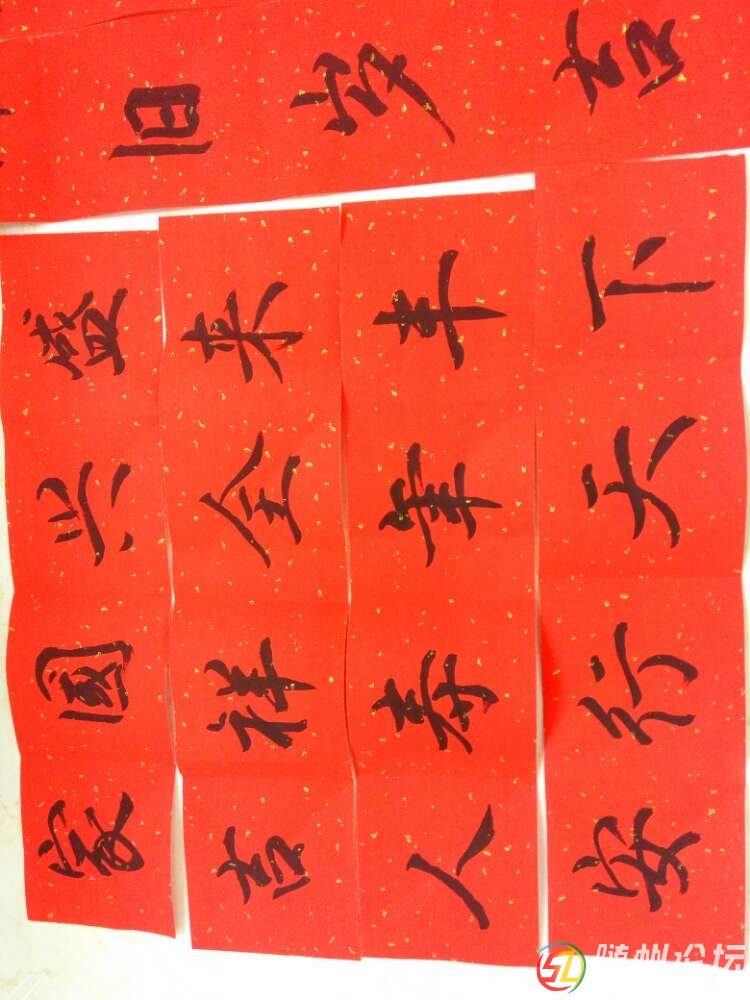 家國兴盛
吉祥全来
人寿年丰
安行天下
旧岁吉
随州论坛